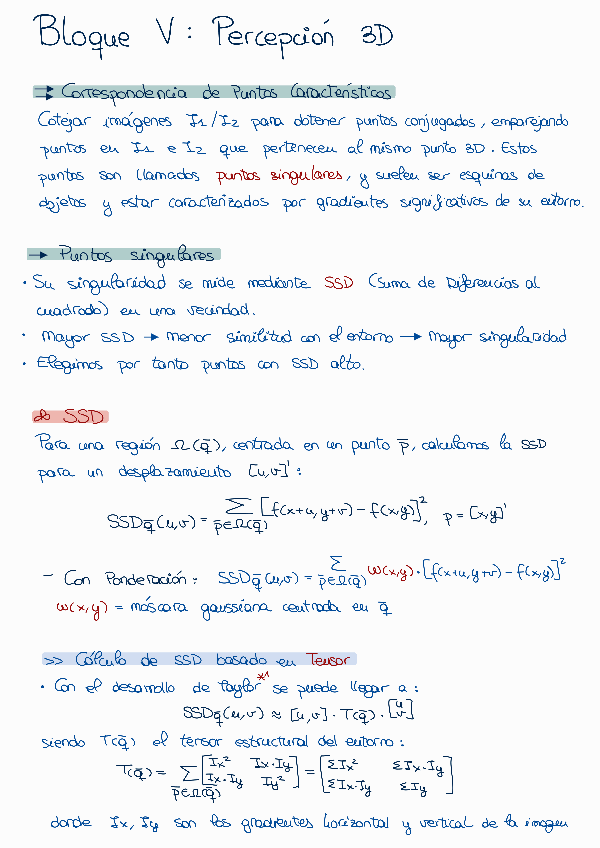 Bloque V: Percepción 3D
→ Correspondencia de Puntos Característicos
Cotejar imágenes I1/I2 para obtener puntos conjugados, emparejando
puntos en I1 e I2 que pertenecen al mismo punto 3D. Estos
puntos son llamados puntos singulares, y suelen ser esquinas de
objetos y estar caracterizados por gradientes significativos de su entorno.
→ Puntos singulares
· Su singularidad se mide mediante SSD (Suma de Diferencias al
cuadrado) en una vecindad.
· Mayor SSD → menor similitud con el entorno → mayor singularidad
· Elegimos por tanto puntos con SSD alto.
SSD
Para una región Ω(q̄), centrada en un punto p̄, calculamos la SSD
para un desplazamiento [u,v]' :
SSDq̄(u,v) = Σ p̄∈Ω(q̄) [f(x+u, y+v) − f(x,y)]², p = [x,y]'
− Con Ponderación: SSDq̄(u,v) = Σ p̄∈Ω(q̄) ω(x,y)·[f(x+u, y+v) − f(x,y)]²
ω(x,y) = máscara gaussiana centrada en q̄
>> Cálculo de SSD basado en Tensor
· Con el desarrollo de Taylor*1 se puede llegar a :
SSDq̄(u,v) ≈ [u,v] · T(q̄) · [u v]
siendo T(q̄) el tensor estructural del entorno :
T(q̄) = Σ p̄∈Ω(q̄) [Ix² Ix·Iy Ix·Iy Iy²] = [ΣIx² ΣIx·Iy ΣIx·Iy ΣIy]
donde Ix, Iy son los gradientes horizontal y vertical de la imagen